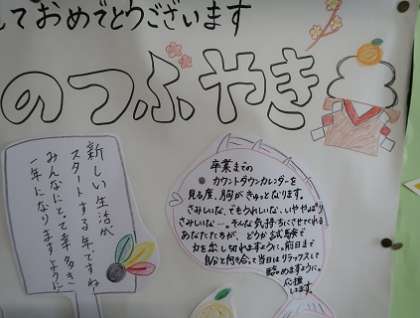 ておめでとうございます
のつぶやき
新しい生活が
スタートする年ですね
みんなにとって幸多き
一年になりますように
卒業までの
カウントダウンカレンダーを
見る度、胸がきゅっとなります。
さみしいな、でもうれしいな、いややっぱり
さみしいなー。そんな気持ちにさせてくれる
あなたたちが、どうか試験で
力を出し切れますように。前日まで
自分と向き合って当日はリラックスして
臨めますように。
応援
してます。